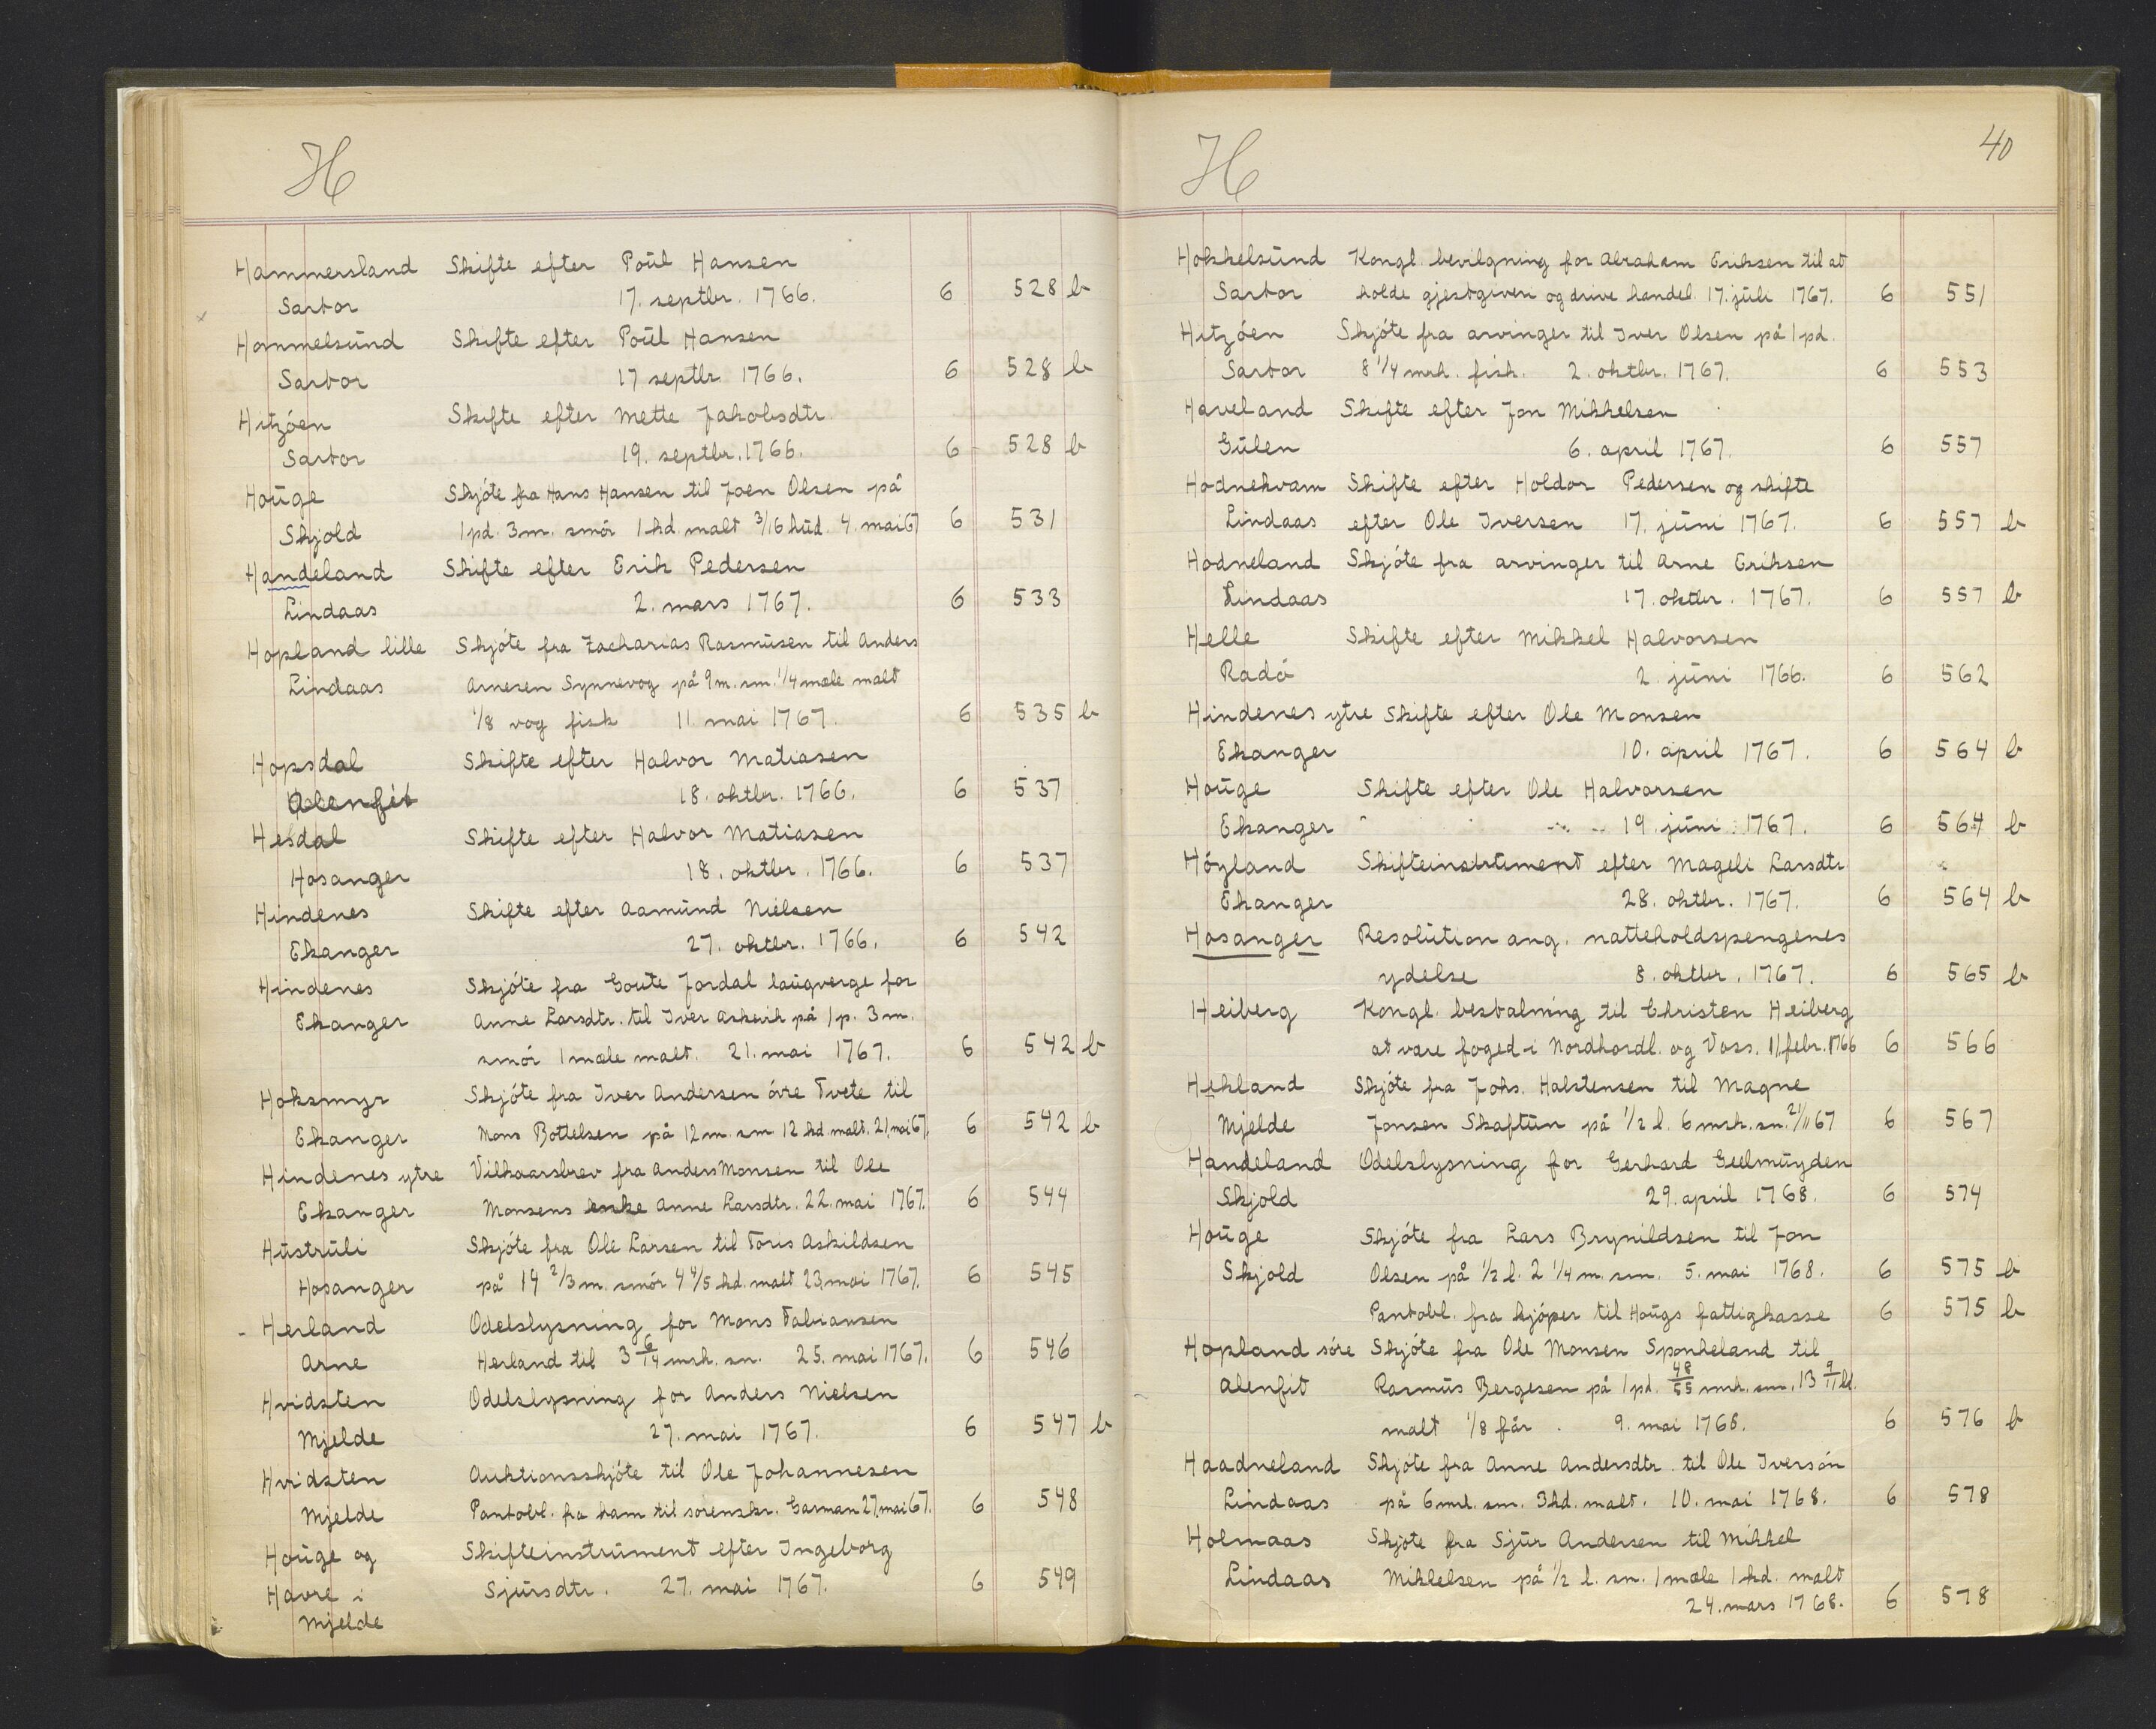 H
Hammersland Skifte efter Poul Hansen
Sartor 17. septbr. 1766. 6 528 b
Hommelsund Skifte efter Poul Hansen
Sartor 17 septbr. 1766. 6 528 b
Hitzöen Skifte efter Mette Jakobsdtr.
Sartor 19. septbr. 1766. 6 528 b
Houge Skjöte fra Hans Hansen til Joen Olsen på
Skjold 1 pd. 3 m. smör 1 hd. malt 3/16 hud. 4. mai 67 6 531
Handeland Skifte efter Erik Pedersen
Lindaas 2. mars 1767. 6 533
Hopland lille Skjöte fra Zacharias Rasmusen til Anders
Lindaas Arnesen Synnevog på 9 m. sm. 1/4 mæle malt
1/8 vog fisk 11 mai 1767. 6 535 b
Hopsdal Skifte efter Halvor Matiasen
Alenfit 18. oktbr. 1766. 6 537
Hesdal Skifte efter Halvor Matiasen
Hosanger 18. oktbr. 1766. 6 537
Hindenes Skifte efter Aamund Nielsen
Ekanger 27. oktbr. 1766. 6 542
Hindenes Skjöte fra Goute Jordal laugverge for
Ekanger Anne Larsdtr. til Iver Askevik på 1 p. 3 m.
smör 1 mæle malt. 21. mai 1767. 6 542 b
Hoksmyr Skjöte fra Iver Andersen övre Tvete til
Ekanger Mons Bottelsen på 12 m. sm 12 kd. malt. 21. mai 67. 6 542 b
Hindenes ytre Vilkaarsbrev fra Anders Monsen til Ole
Ekanger Monsens enke Anne Larsdtr. 22. mai 1767. 6 544
Hustruli Skjöte fra Ole Larsen til Toris Askildsen
Hosanger på 14 2/3 m. smör 4 4/5 kd. malt 23. mai 1767. 6 545
- Herland Odelslysning for Mons Fabiansen
Arne Herland til 3 6/14 mrk. sm. 25. mai 1767. 6 546
Hvidsten Odelslysning for Anders Nielsen
Mjelde 27. mai 1767. 6 547 b
Hvidsten Auktionsskjöte til Ole Johannesen
Mjelde Pantobl. fra ham til sorenskr. Garman 27. mai 67. 6 548
Houge og Skifteinstrument efter Ingeborg
Havre i Sjursdtr. 27. mai 1767. 6 549
Mjelde
H 40
Hokkelsund Kongl. bevilgning for Abraham Eriksen til at
Sartor holde gjestgiveri og drive handel. 17. juli 1767. 6 551
Hitzöen Skjöte fra arvinger til Iver Olsen på 1 pd.
Sartor 8 1/4 mrk. fisk. 2. oktbr. 1767. 6 553
Haveland Skifte efter Jon Mikkelsen
Gulen 6. april 1767. 6 557
Hodnekvam Skifte efter Holdor Pedersen og skifte
Lindaas efter Ole Iversen 17. juni 1767. 6 557 b
Hodneland Skjöte fra arvinger til Arne Eriksen
Lindaas 17. oktbr. 1767. 6 557 b
Helle Skifte efter Mikkel Halvorsen
Radö 2. juni 1766. 6 562
Hindenes ytre Skifte efter Ole Monsen
Ekanger 10. april 1767. 6 564 b
Houge Skifte efter Ole Halvorsen
Ekanger 19. juni 1767. 6 564 b
Höyland Skifteinstrument efter Mageli Larsdtr
Ekanger 28. oktbr. 1767. 6 564 b
Hosanger Resolution ang. natteholdspengenes
ydelse 8. oktbr. 1767. 6 565 b
Heiberg Kongl. bestalning til Christen Heiberg
at være foged i Nordhordl. og Voss. 11 febr. 1766 6 566
Hekland Skjöte fra Johs. Halstensen til Magne
Mjelde Jonsen Skaftun på 1/2 l. 6 mrk. sm. 21/11 67 6 567
Handeland Odelslysning for Gerhard Geelmuyden
Skjold 29. april 1768. 6 574
Houge Skjöte fra Lars Brynildsen til Jon
Skjold Olsen på 1/2 l. 2 1/4 m. sm. 5. mai 1768. 6 575 b
Pantobl. fra kjöper til Hougs fattigkasse 6 575 b
Hopland söre Skjöte fra Ole Monsen Sponheland til
Alenfit Rasmus Bergesen på 1 pd. 48/55 mrk. sm. 13 9/11 kd.
malt 1/8 får. 9. mai 1768. 6 576 b
Haadneland Skjöte fra Anne Andersdtr. til Ole Iversön
Lindaas på 6 mrk. sm. 3 kd. malt. 10. mai 1768. 6 578
Holmaas Skjöte fra Sjur Andersen til Mikkel
Lindaas Mikkelsen på 1/2 l. sm. 1 mæle 1 kd. malt
24. mars 1768. 6 578